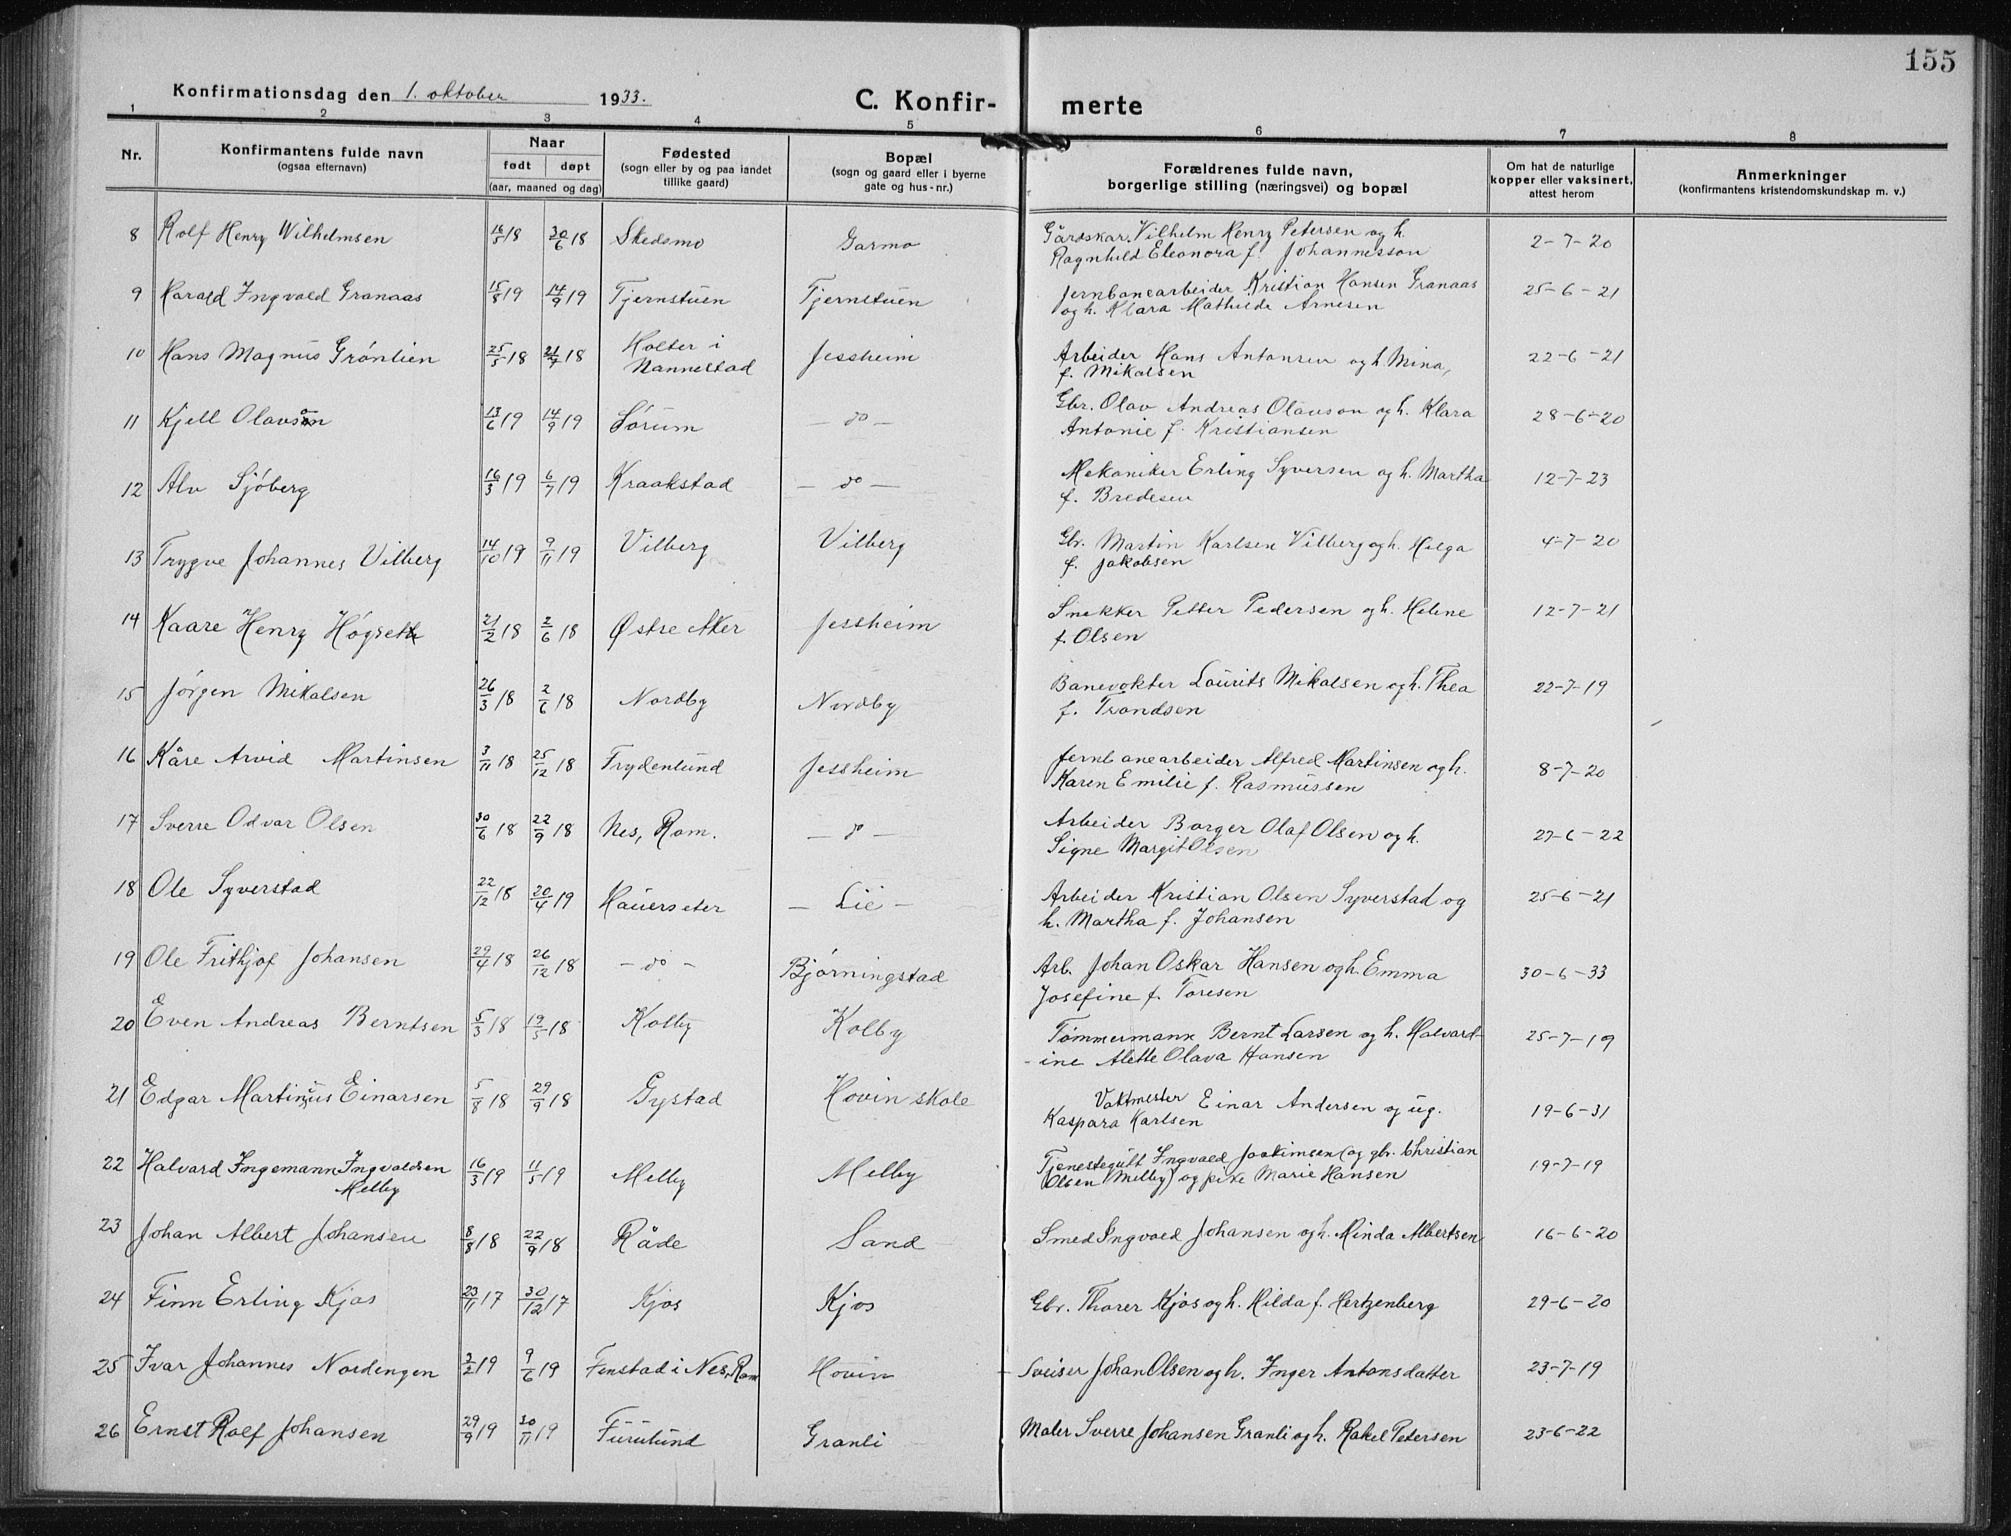 155
Konfirmationsdag den 1. oktober 1933.
C. Konfir- merte
1 2 3 4 5 6 7 8
Nr.
Konfirmantens fulde navn
(ogsaa efternavn)
Naar
født døpt
(aar, maaned og dag)
Fødested
(sogn eller by og paa landet
tillike gaard)
Bopæl
(sogn og gaard eller i byerne
gate og hus-nr.)
Forældrenes fulde navn,
borgerlige stilling (næringsvei) og bopæl
Om hat de naturlige
kopper eller vaksinert,
attest herom
Anmerkninger
(konfirmantens kristendomskundskap m. v.)
8 Rolf Henry Wilhelmsen 16/5 18 30/6 18 Skedsmo Garmo Gårdskar. Vilhelm Henry Petersen og h.
Ragnhild Eleonora f. Johannesson 2-7-20
9 Harald Ingvald Granaas 15/8 19 14/9 19 Tjernstuen Tjernstuen Jernbanearbeider Kristian Hansen Granaas
og h. Klara Mathilde Arnesen 25-6-21
10 Hans Magnus Grönlien 25/5 18 21/7 18 Holter i
Nannestad Jessheim Arbeider Hans Antonsen og h. Mina,
f. Mikalsen 22-6-21
11 Kjell Olavson 13/6 19 14/9 19 Sörum - do - Gbr. Olav Andreas Olavson og h. Klara
Antonie f. Kristiansen 28-6-20
12 Alv Sjöberg 16/3 19 6/7 19 Kraakstad - do - Mekaniker Erling Syversen og h. Martha
f. Bredesen 12-7-23
13 Trygve Johannes Vilberg 14/10 19 9/11 19 Vilberg Vilberg Gbr. Martin Karlsen Vilberg og h. Helga
f. Jakobsen 4-7-20
14 Kaare Henry Högseth 21/2 18 2/6 18 Østre Aker Jessheim Snekker Petter Pedersen og h. Helene
f. Olsen 12-7-21
15 Jörgen Mikalsen 26/3 18 2/6 18 Nordby Nordby Banevokter Laurits Mikalsen og h. Thea
f. Trondsen 22-7-19
16 Kåre Arvid Martinsen 3/11 18 25/12 18 Frydenlund Jessheim Jernbanearbeider Alfred Martinsen og h.
Karen Emilie f. Rasmussen 8-7-20
17 Sverre Odvar Olsen 30/6 18 22/9 18 Nes, Rom. - do - Arbeider Borger Olaf Olsen og h.
Signe Margit Olsen 27-6-22
18 Ole Syverstad 22/12 18 20/4 19 Hauerseter - Lie - Arbeider Kristian Olsen Syverstad og
h. Martha f. Johansen 25-6-21
19 Ole Frithjof Johansen 29/4 18 26/12 18 - do - Bjørningstad Arb. Johan Oskar Hansen og h. Emma
Josefine f. Toresen 30-6-33
20 Even Andreas Berntsen 5/3 18 19/5 18 Kolby Kolby Tömmermann Bernt Larsen og h. Halvard-
-ine Alette Olava Hansen 25-7-19
21 Edgar Martinius Einarsen 5/8 18 29/9 18 Gystad Hovin skole Vaktmester Einar Andersen og ug.
Kaspara Karlsen 19-6-31
22 Halvard Ingemann Ingvaldsen
Melby 16/3 19 11/5 19 Melby Melby Tjenestegutt Ingvald Joakimsen (og gbr. Christian
Olsen Melby) og pike Marie Hansen 19-7-19
23 Johan Albert Johansen 8/8 18 22/9 18 Råde Sand Smed Ingvald Johansen og h. Minda Albertsen 16-6-20
24 Finn Erling Kjos 23/11 17 30/12 17 Kjos Kjos Gbr. Thorer Kjos og h. Hilda f. Hertzenberg 29-6-20
25 Ivar Johannes Nordengen 3/2 19 9/6 19 Fenstad i Nes, Rom Hovin Sveiser Johan Olsen og h. Inger Antonsdatter 23-7-19
26 Ernst Rolf Johansen 29/9 19 30/11 19 Furulund Granli Maler Sverre Johansen Granli og h. Rakel Petersen 23-6-22